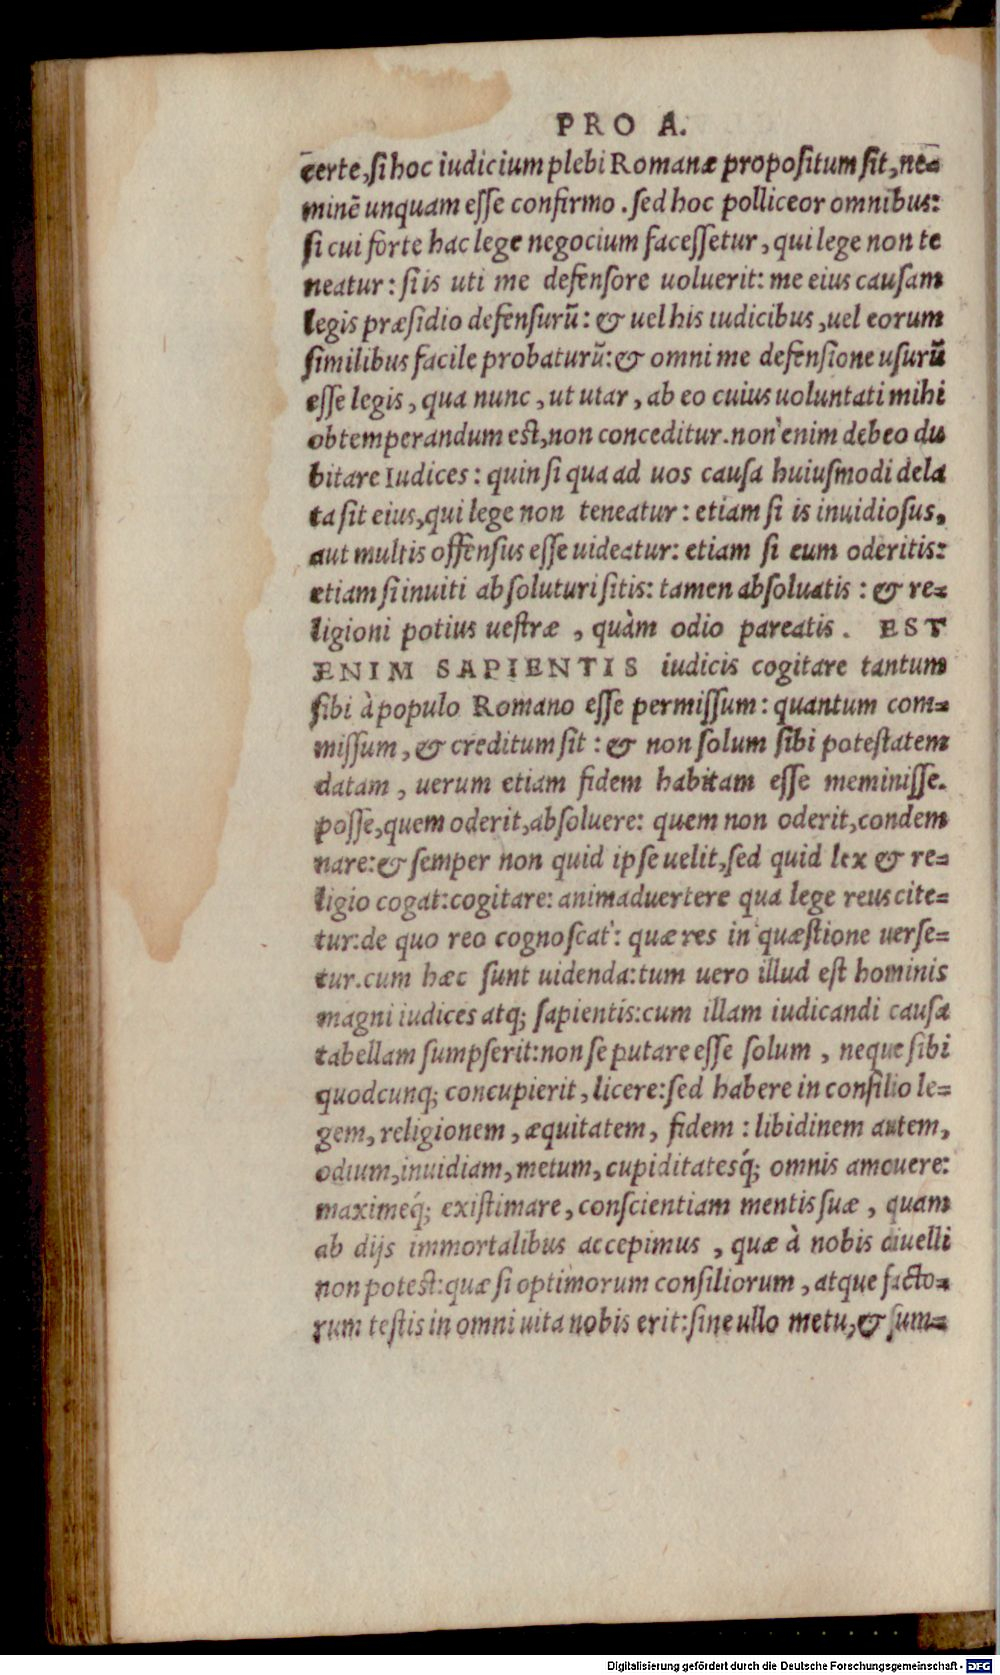 PRO A.
certe, si hoc iudicium plebi Romanæ propositum sit, ne=
minē unquam esse confirmo. sed hoc polliceor omnibus:
si cui forte hac lege negocium facessetur, qui lege non te
neatur: si is uti me defensore uoluerit: me eius causam
legis præsidio defensurū: & uel his iudicibus, uel eorum
similibus facile probaturū: & omni me defensione usurū
esse legis, qua nunc, ut utar, ab eo cuius uoluntati mihi
obtemperandum est, non conceditur. non enim debeo du
bitare Iudices: quin si qua ad uos causa huiusmodi dela
ta sit eius, qui lege non teneatur: etiam si is inuidiosus,
aut multis offensus esse uideatur: etiam si eum oderitis:
etiam si inuiti absoluturi sitis: tamen absoluatis: & re=
ligioni potius uestræ, quàm odio pareatis. EST
ENIM SAPIENTIS iudicis cogitare tantum
sibi à populo Romano esse permissum: quantum com=
missum, & creditum sit: & non solum sibi potestatem
datam, uerum etiam fidem habitam esse meminisse.
posse, quem oderit, absoluere: quem non oderit, condem
nare: & semper non quid ipse uelit, sed quid lex & re=
ligio cogat: cogitare: animaduertere qua lege reus cite=
tur: de quo reo cognoscat: quæ res in quæstione uerse=
tur. cum hæc sunt uidenda: tum uero illud est hominis
magni iudices atq; sapientis: cum illam iudicandi causa
tabellam sumpserit: non se putare esse solum, neque sibi
quodcunq; concupierit, licere: sed habere in consilio le=
gem, religionem, æquitatem, fidem: libidinem autem,
odium, inuidiam, metum, cupiditatesq́; omnis amouere:
maximeq́; existimare, conscientiam mentis suæ, quam
ab dijs immortalibus accepimus, quæ à nobis diuelli
non potest: quæ si optimorum consiliorum, atque facto=
rum testis in omni uita nobis erit: sine ullo metu, & sum=
Digitalisierung gefördert durch die Deutsche Forschungsgemeinschaft - DFG